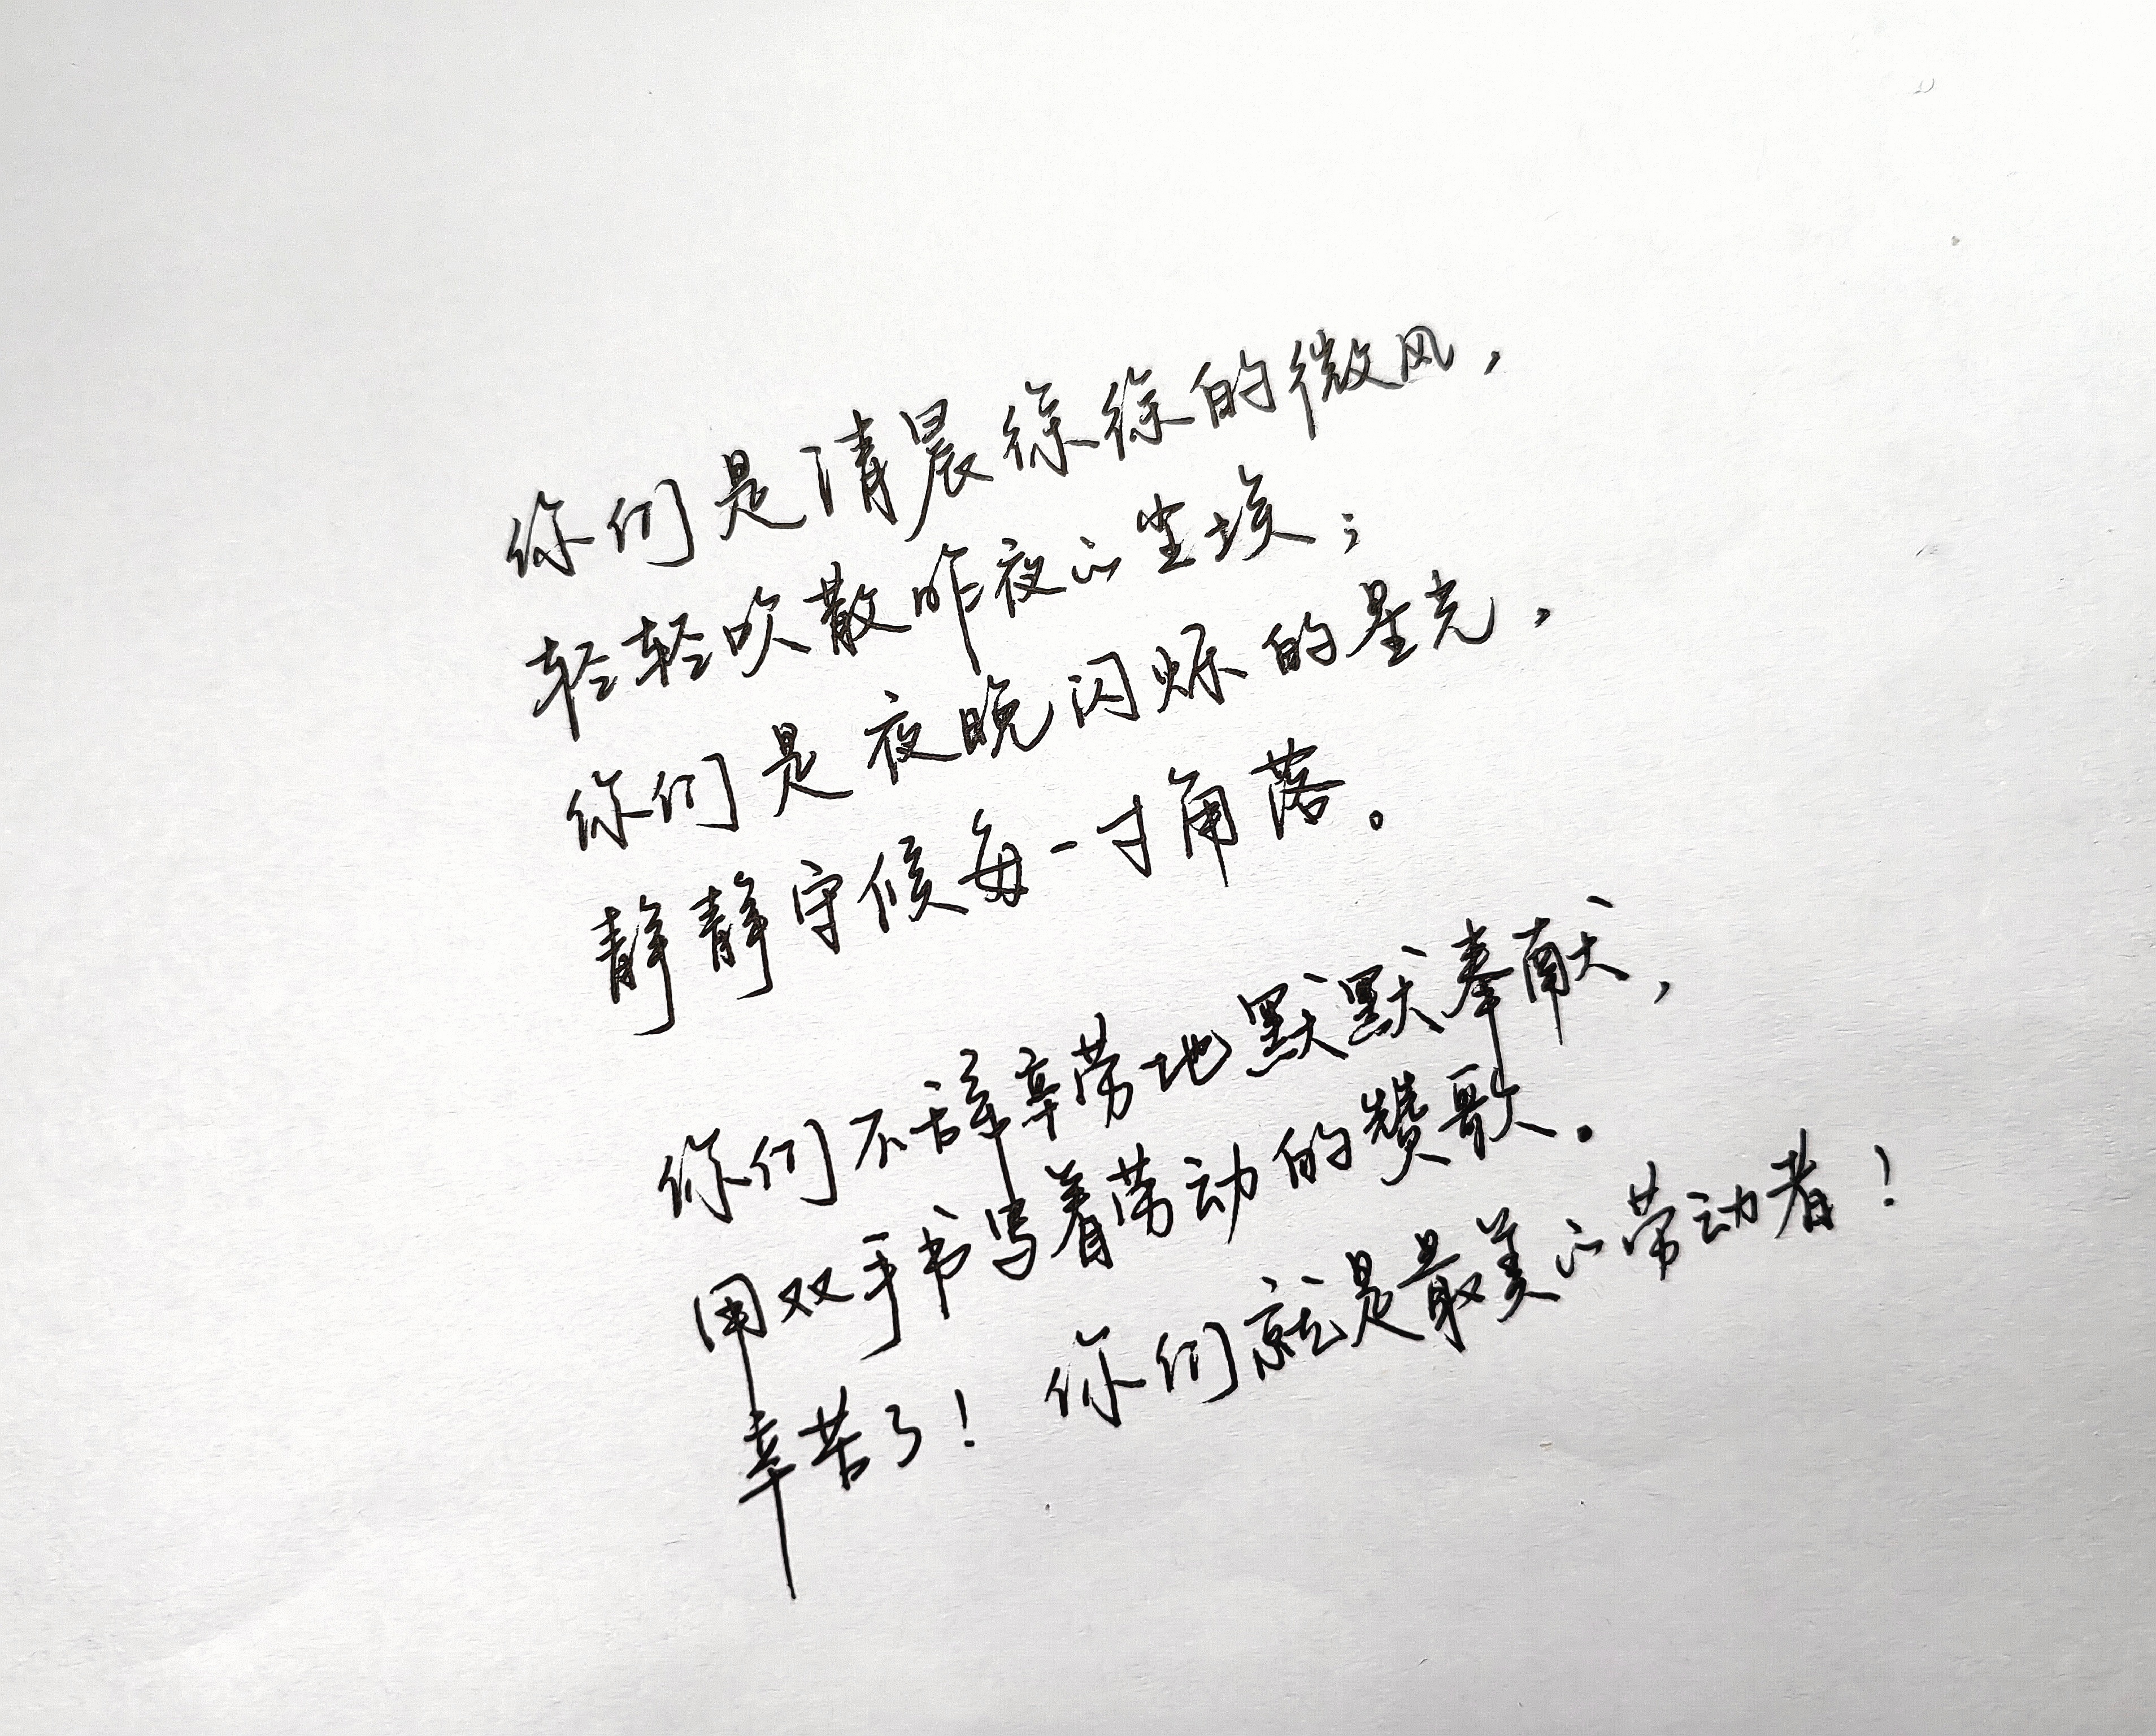 你们是清晨徐徐的微风，
轻轻吹散昨夜的尘埃；
你们是夜晚闪烁的星光，
静静守候每一寸角落。
你们不辞辛劳地默默奉献，
用双手书写着劳动的赞歌。
辛苦了！你们就是最美的劳动者！